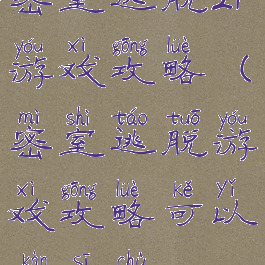 密室逃脱21
yóu xì gōng lüè
游戏攻略（
mì shì táo tuō yóu
密室逃脱游
xì gōng lüè kě yǐ
戏攻略可以
kàn sī chù